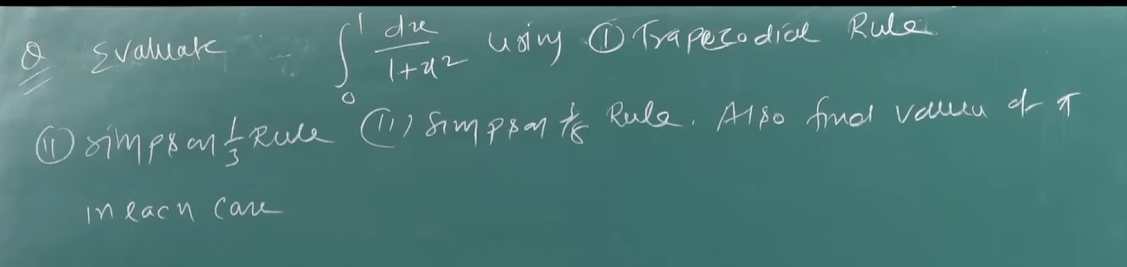 Q Evaluate ∫₀¹ dx/1+x² using (I) Trapezodial Rule
(II) Simpson 1/3 Rule (II) Simpson 3/8 Rule. Also find values of π
in each case